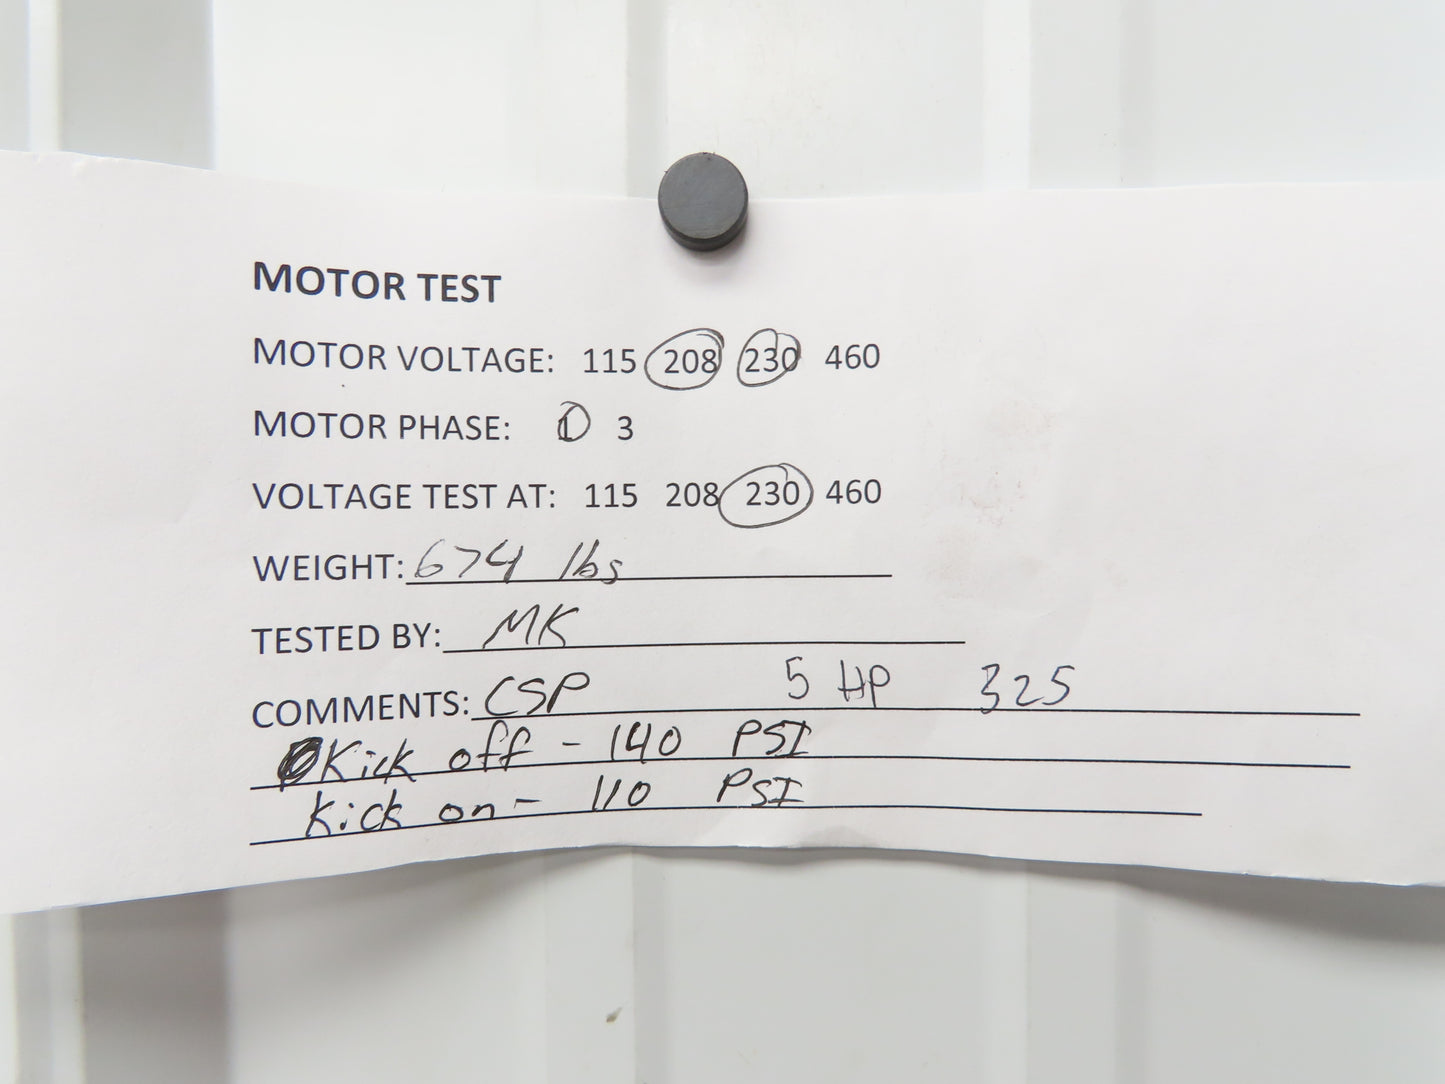 MOTOR TEST
MOTOR VOLTAGE: 115 208 230 460
MOTOR PHASE: 1 3
VOLTAGE TEST AT: 115 208 230 460
WEIGHT: 674 lbs
TESTED BY: MK
COMMENTS: CSP 5 HP 325
Kick off - 140 PSI
Kick on - 110 PSI